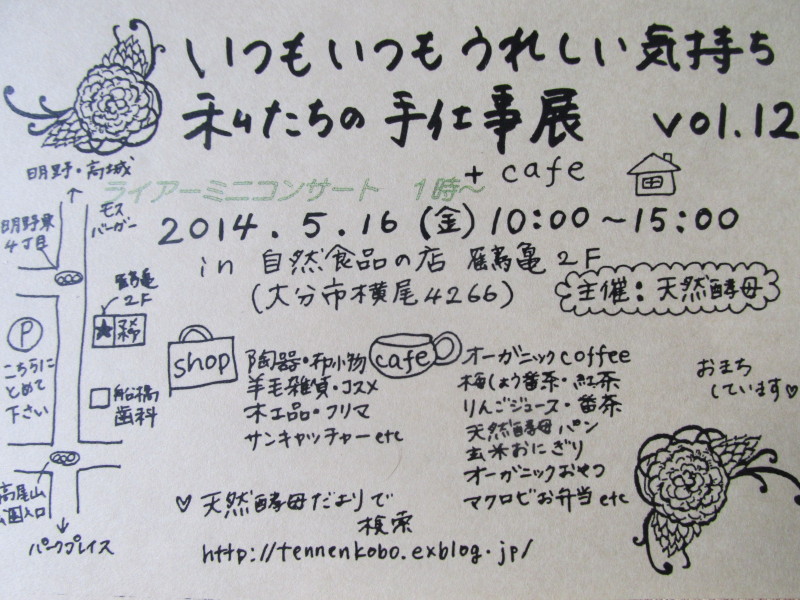 いつもいつもうれしい気持ち
私たちの手仕事展 vol.12
+ cafe
ライアーミニコンサート 1時~
2014.5.16(金)10:00~15:00
in 自然食品の店 鶴亀2F
(大分市横尾4266)
主催:天然酵母
明野・高城
モス
バーガー
明野東
4丁目
鶴亀
2F
P
こちらに
とめて
下さい
船橋
歯科
高尾山
公園入口
パークプレイス
shop
陶器・布小物
羊毛雑貨・コスメ
木工品・フリマ
サンキャッチャーetc
cafe
オーガニックcoffee
梅しょう番茶・紅茶
りんごジュース・番茶
天然酵母パン
玄米おにぎり
オーガニックおやつ
マクロビお弁当etc
おまち
しています♡
♡天然酵母だよりで
検索
http://tennenkobo.exblog.jp/